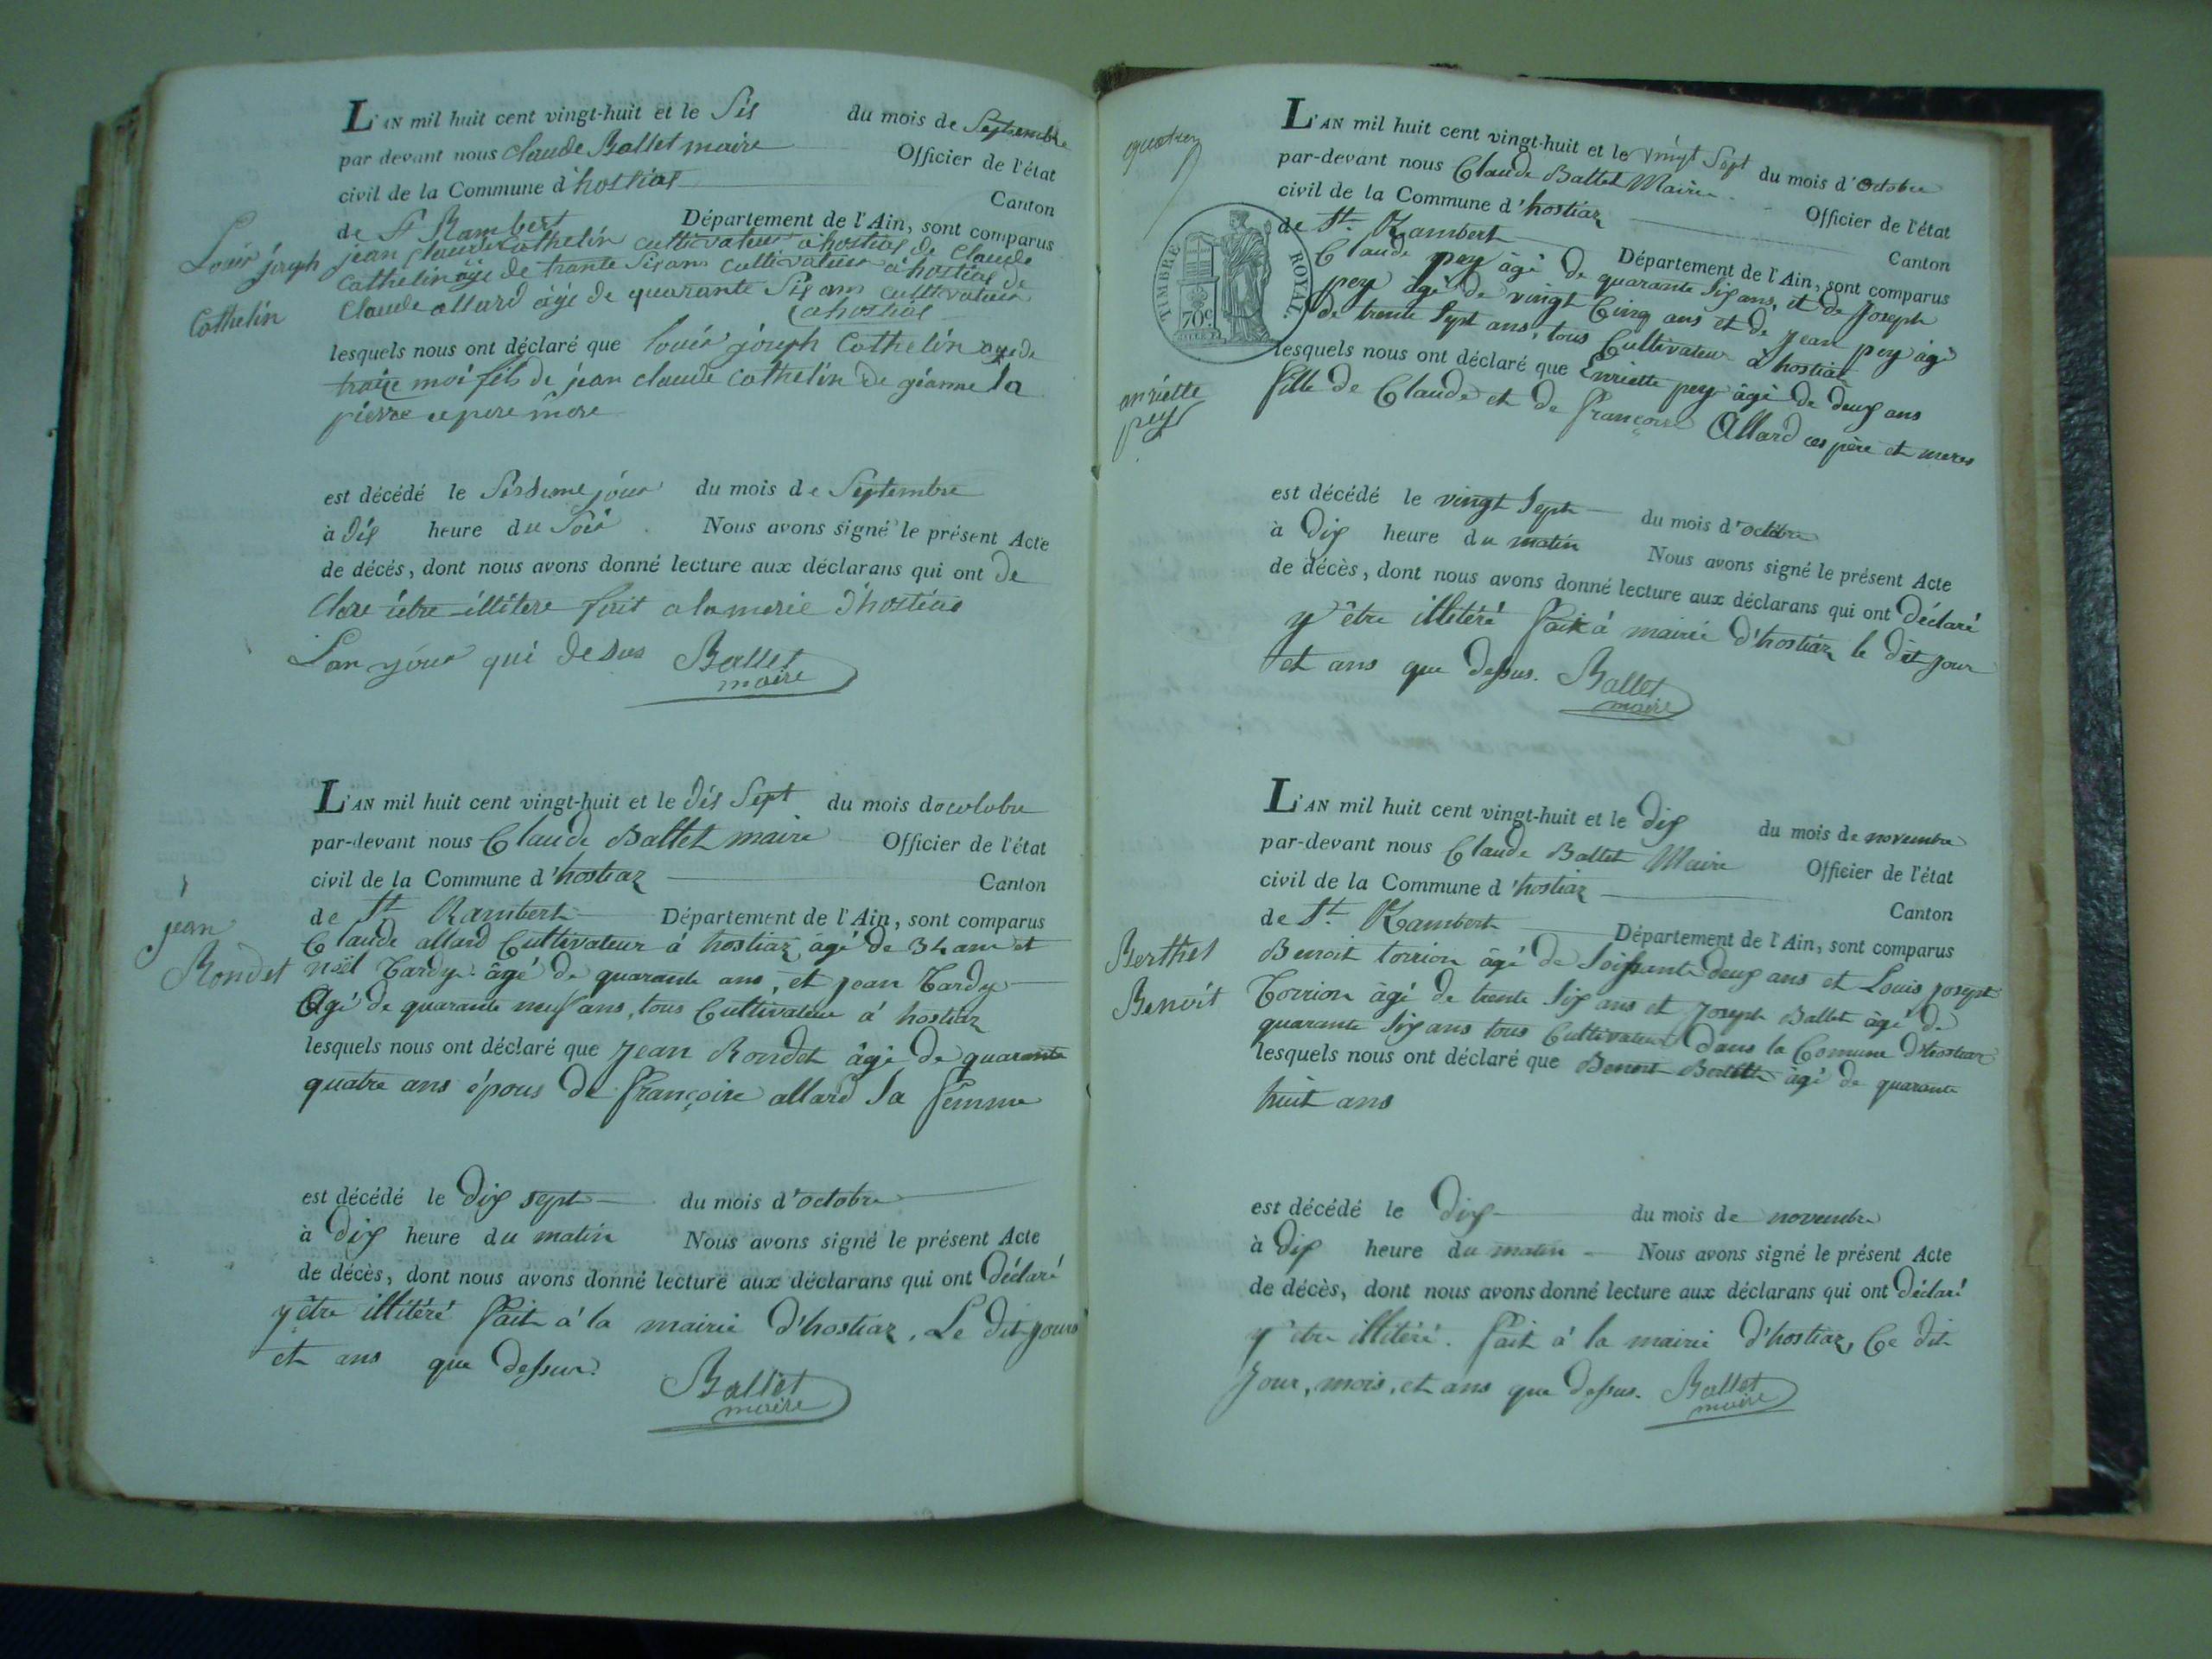 L'AN mil huit cent vingt-huit et le Sis du mois de Septembre
par devant nous Claude Ballet maire Officier de l'état
civil de la Commune d'hostias Canton
de St Rambert Département de l'Ain, sont comparus
jean claude Cathelin cultivateur a hostias de Claude
Cathelin age de trante Sis ans cultivateur a hostias de
Claude allard âge de quarante Sis ans cultivateur
a hostias
Louis joseph
Cathelin
lesquels nous ont déclaré que louis joseph Cathelin age de
traize moi fils de jean claude cathelin de jéanne la
pierre ce pere mere
est décédé le Sissieme jour du mois de Septembre
à Dis heure du Soir Nous avons signé le présent Acte
de décès, dont nous avons donné lecture aux déclarans qui ont de
Clare iètre illitere fait a la merie d'hostias
L'an jour qui desus Ballet
maire
L'AN mil huit cent vingt-huit et le dis Sept du mois d'octobre
par-devant nous Claude Ballet maire Officier de l'état
civil de la Commune d'hostiaz Canton
de St Rambert Département de l'Ain, sont comparus
Claude allard Cultivateur á hostiaz âgé de 34 ans et
noël Tardy âgé de quarante ans, et jean Tardy
Agé de quarante neuf ans, tous Cultivateur á hostiaz
jean
Rondet
lesquels nous ont déclaré que Jean Rondet âgé de quarante
quatre ans épous de françoise allard Sa femme
est décédé le dix sept du mois d'octobre
à dix heure du matin Nous avons signé le présent Acte
de décès, dont nous avons donné lecture aux déclarans qui ont déclaré
y être illitéré fait á la mairie d'hostiaz, Le dit jours
et ans que dessus.
Ballet
maire
L'AN mil huit cent vingt-huit et le vingt Sept du mois d'Octobre
par-devant nous Claude Ballet Maire Officier de l'état
civil de la Commune d'hostiaz Canton
de St. Rambert Département de l'Ain, sont comparus
Claude pey âgé de quarante Six ans, et de Joseph
pey âgé de vingt Cinq ans et de Jean pey âgé
de trente Sept ans, tous Cultivateur á hostiaz
TIMBRE ROYAL
70c
lesquels nous ont déclaré que Enriette pey âgé de deux ans
fille de Claude et de françoise Allard ces père et meres
anriette
pey
est décédé le vingt Sept du mois d'octobre
à Dix heure du matin Nous avons signé le présent Acte
de décès, dont nous avons donné lecture aux déclarans qui ont Déclaré
y être illitéré fait á mairie d'hostiaz le dit jour
et ans que dessus. Ballet
maire
L'AN mil huit cent vingt-huit et le dix du mois de novembre
par-devant nous Claude Ballet Maire Officier de l'état
civil de la Commune d'hostiaz Canton
de St. Rambert Département de l'Ain, sont comparus
Benoit torrion âgé de Soixante deux ans et Louis joseph
Torrion âgé de trente Six ans et Joseph Ballet âgé de
quarante Six ans tous Cultivateur dans la Comune d'hostiaz
Berthet
Benoit
lesquels nous ont déclaré que Benoit Berthet âgé de quarante
huit ans
est décédé le dix du mois de novembre
à dix heure du matin Nous avons signé le présent Acte
de décès, dont nous avons donné lecture aux déclarans qui ont déclaré
y être illitéré. fait á la mairie d'hostiaz, Ce dit
Jour, mois, et ans que dessus. Ballet
maire